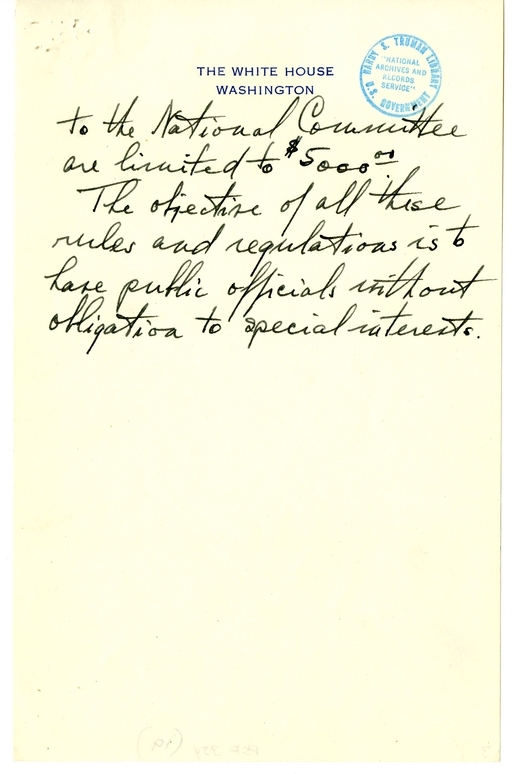 THE WHITE HOUSE
WASHINGTON
HARRY S. TRUMAN LIBRARY
"NATIONAL
ARCHIVES AND
RECORDS
SERVICE"
U.S. GOVERNMENT
to the National Committee
are limited to $5000 00.
The objective of all these
rules and regulations is to
have public officials without
obligation to special interests.